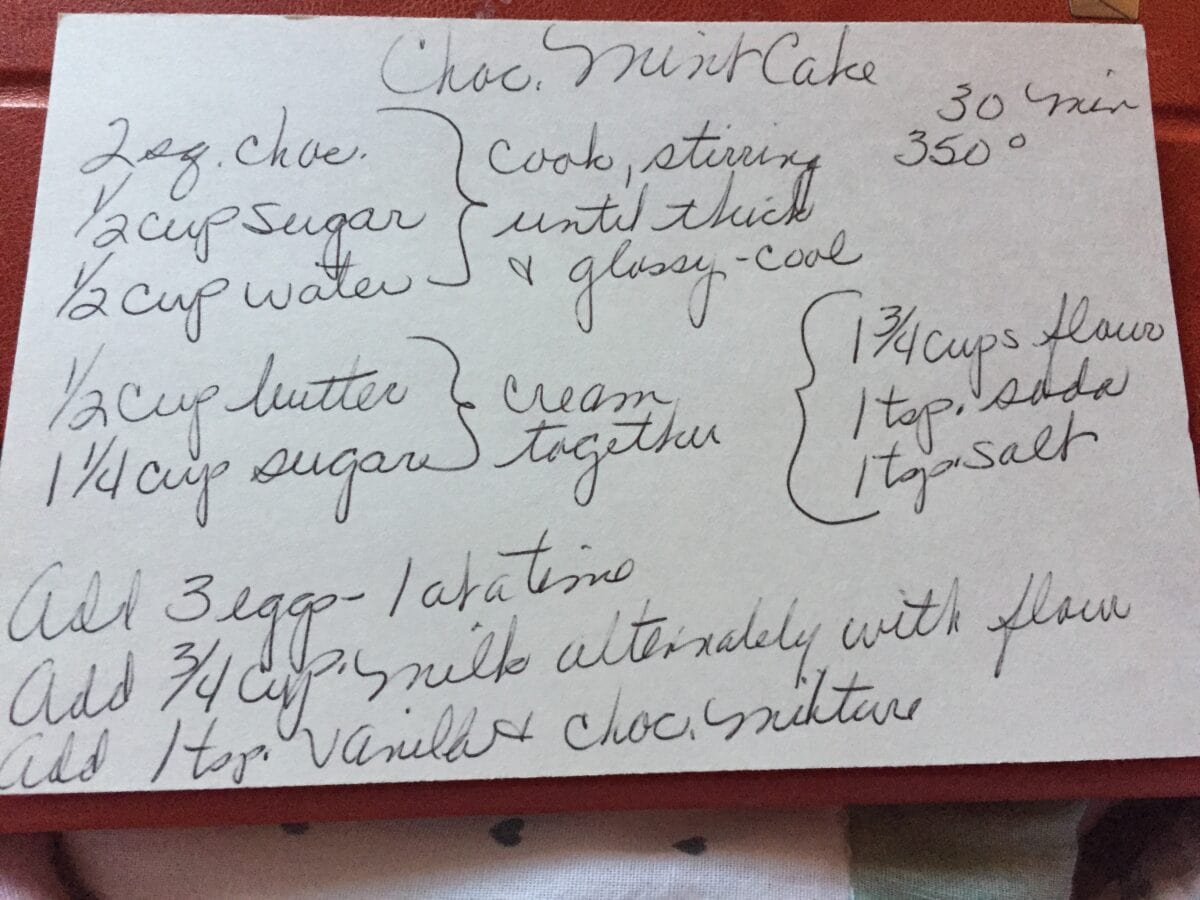 Choc. Mint Cake
30 min
350°
2 sq. choc.
1/2 cup sugar
1/2 cup water
cook, stirring
until thick
& glossy - cool
1/2 cup butter
1 1/4 cup sugar
cream
together
1 3/4 cups flour
1 tsp. soda
1 tsp. salt
Add 3 eggs - 1 at a time
Add 3/4 cup milk alternately with flour
Add 1 tsp. vanilla & choc. mixture